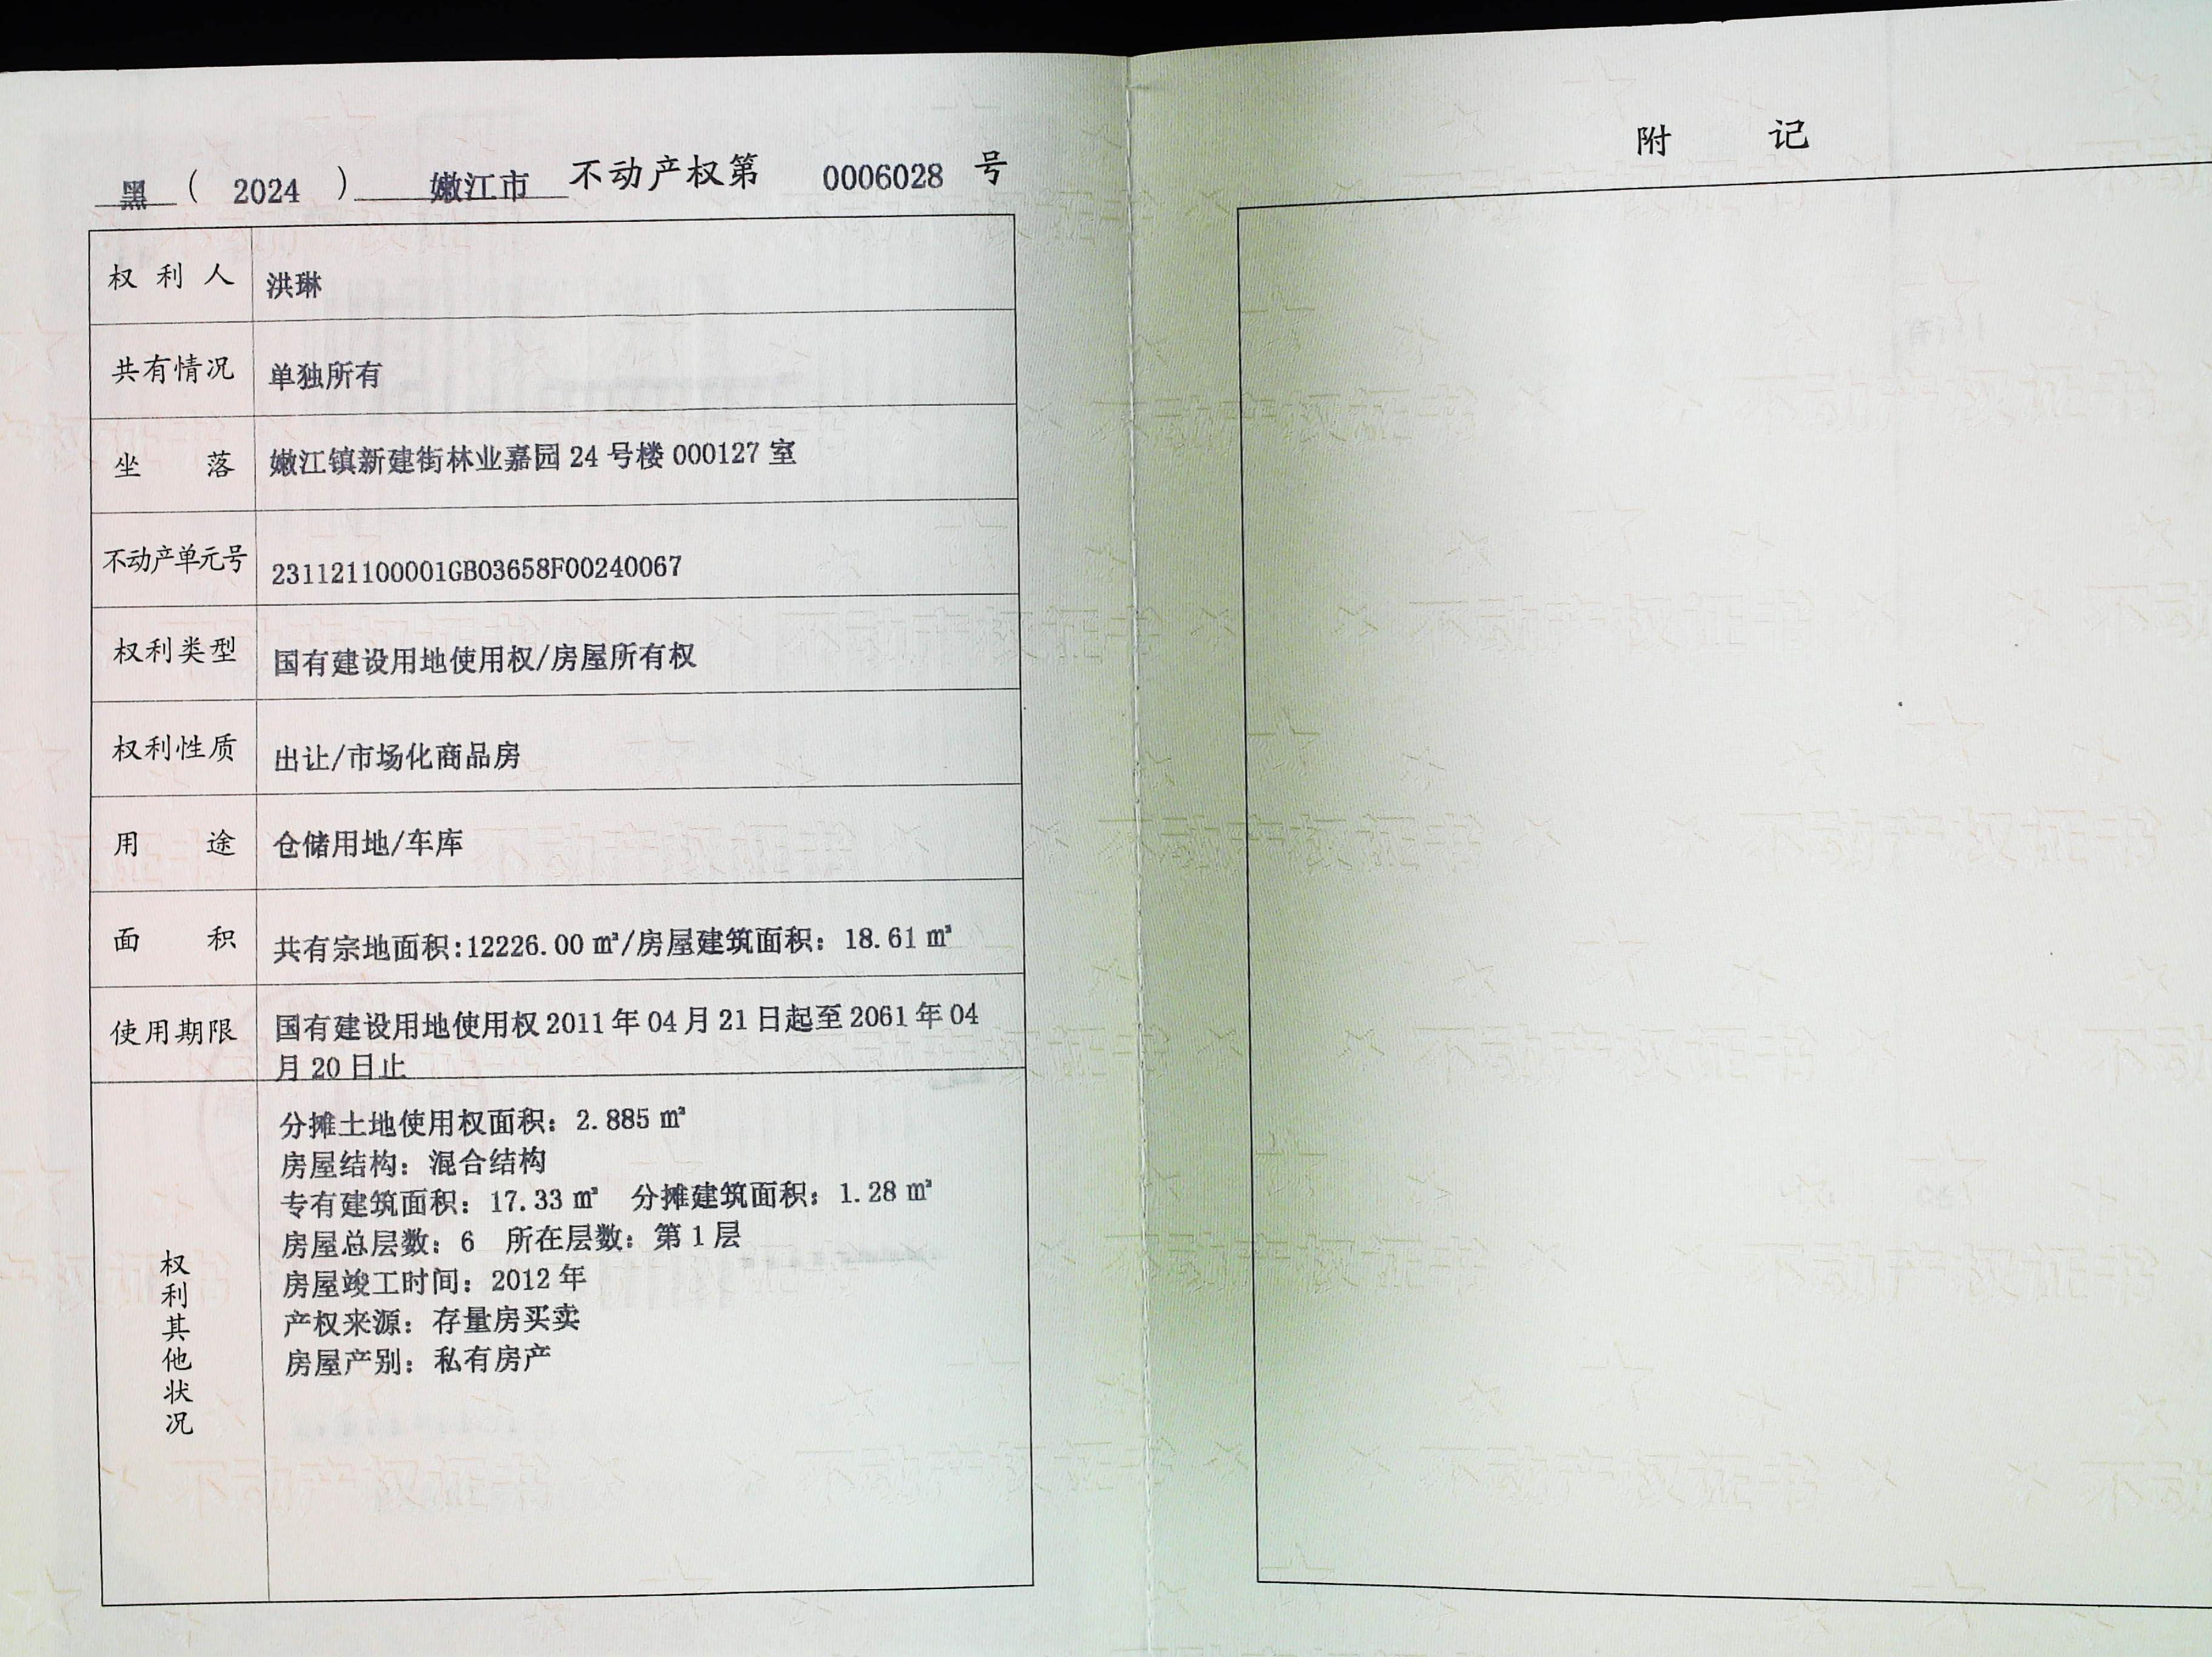 黑 ( 2024 ) 嫩江市 不动产权第 0006028 号
权利人 洪琳
共有情况 单独所有
坐落 嫩江镇新建街林业嘉园 24 号楼 000127 室
不动产单元号 231121100001GB03658F00240067
权利类型 国有建设用地使用权/房屋所有权
权利性质 出让/市场化商品房
用途 仓储用地/车库
面积 共有宗地面积:12226.00 ㎡/房屋建筑面积: 18.61 ㎡
使用期限 国有建设用地使用权 2011 年 04 月 21 日起至 2061 年 04
月 20 日止
权利其他状况
分摊土地使用权面积: 2.885 ㎡
房屋结构: 混合结构
专有建筑面积: 17.33 ㎡ 分摊建筑面积: 1.28 ㎡
房屋总层数: 6 所在层数: 第 1 层
房屋竣工时间: 2012 年
产权来源: 存量房买卖
房屋产别: 私有房产
附记